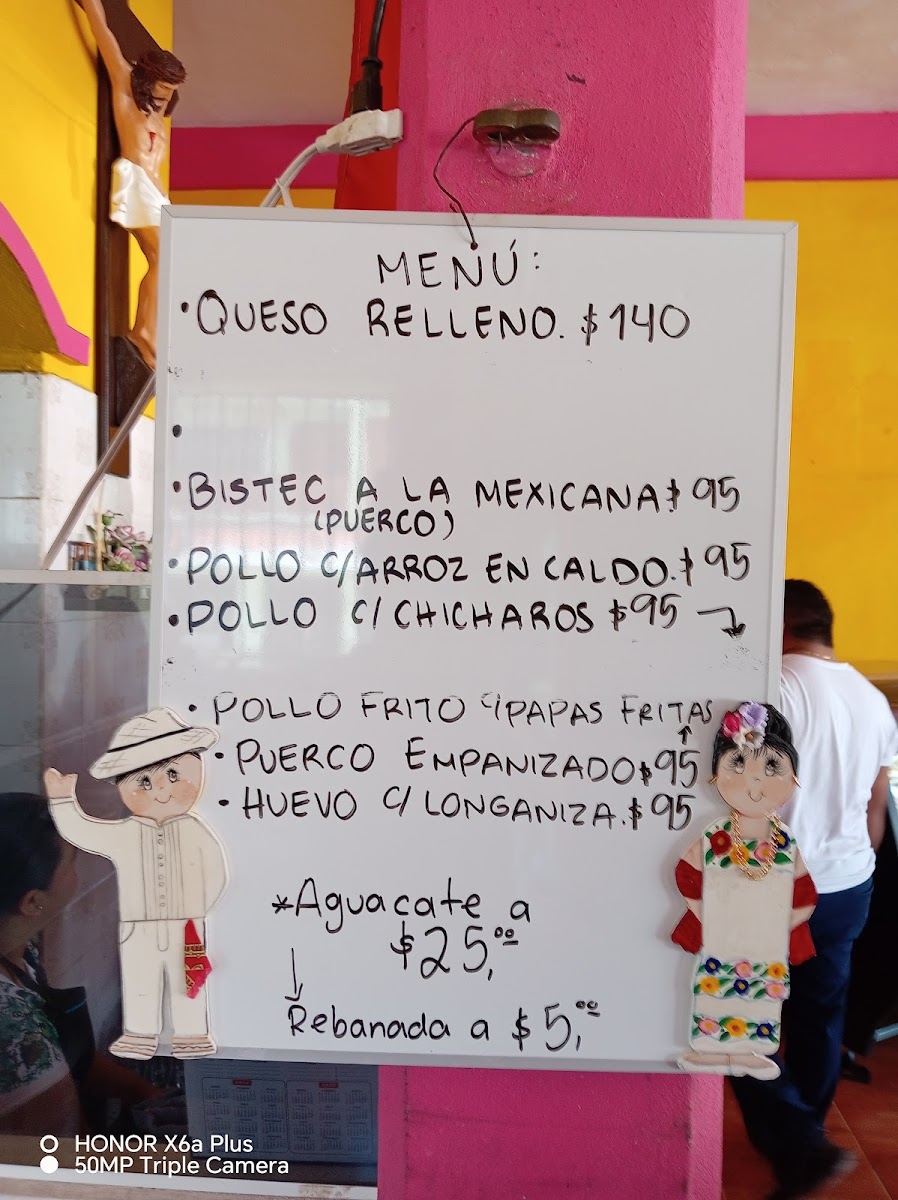 MENÚ:
• QUESO RELLENO. $140
•
• BISTEC A LA MEXICANA $ 95
(PUERCO)
• POLLO C/ARROZ EN CALDO. $ 95
• POLLO C/CHICHAROS $95 →
• POLLO FRITO C/PAPAS FRITAS
↑
• PUERCO EMPANIZADO $95
• HUEVO C/LONGANIZA. $95
*Aguacate a
$25,00
↓
Rebanada a $5,00
HONOR X6a Plus
50MP Triple Camera